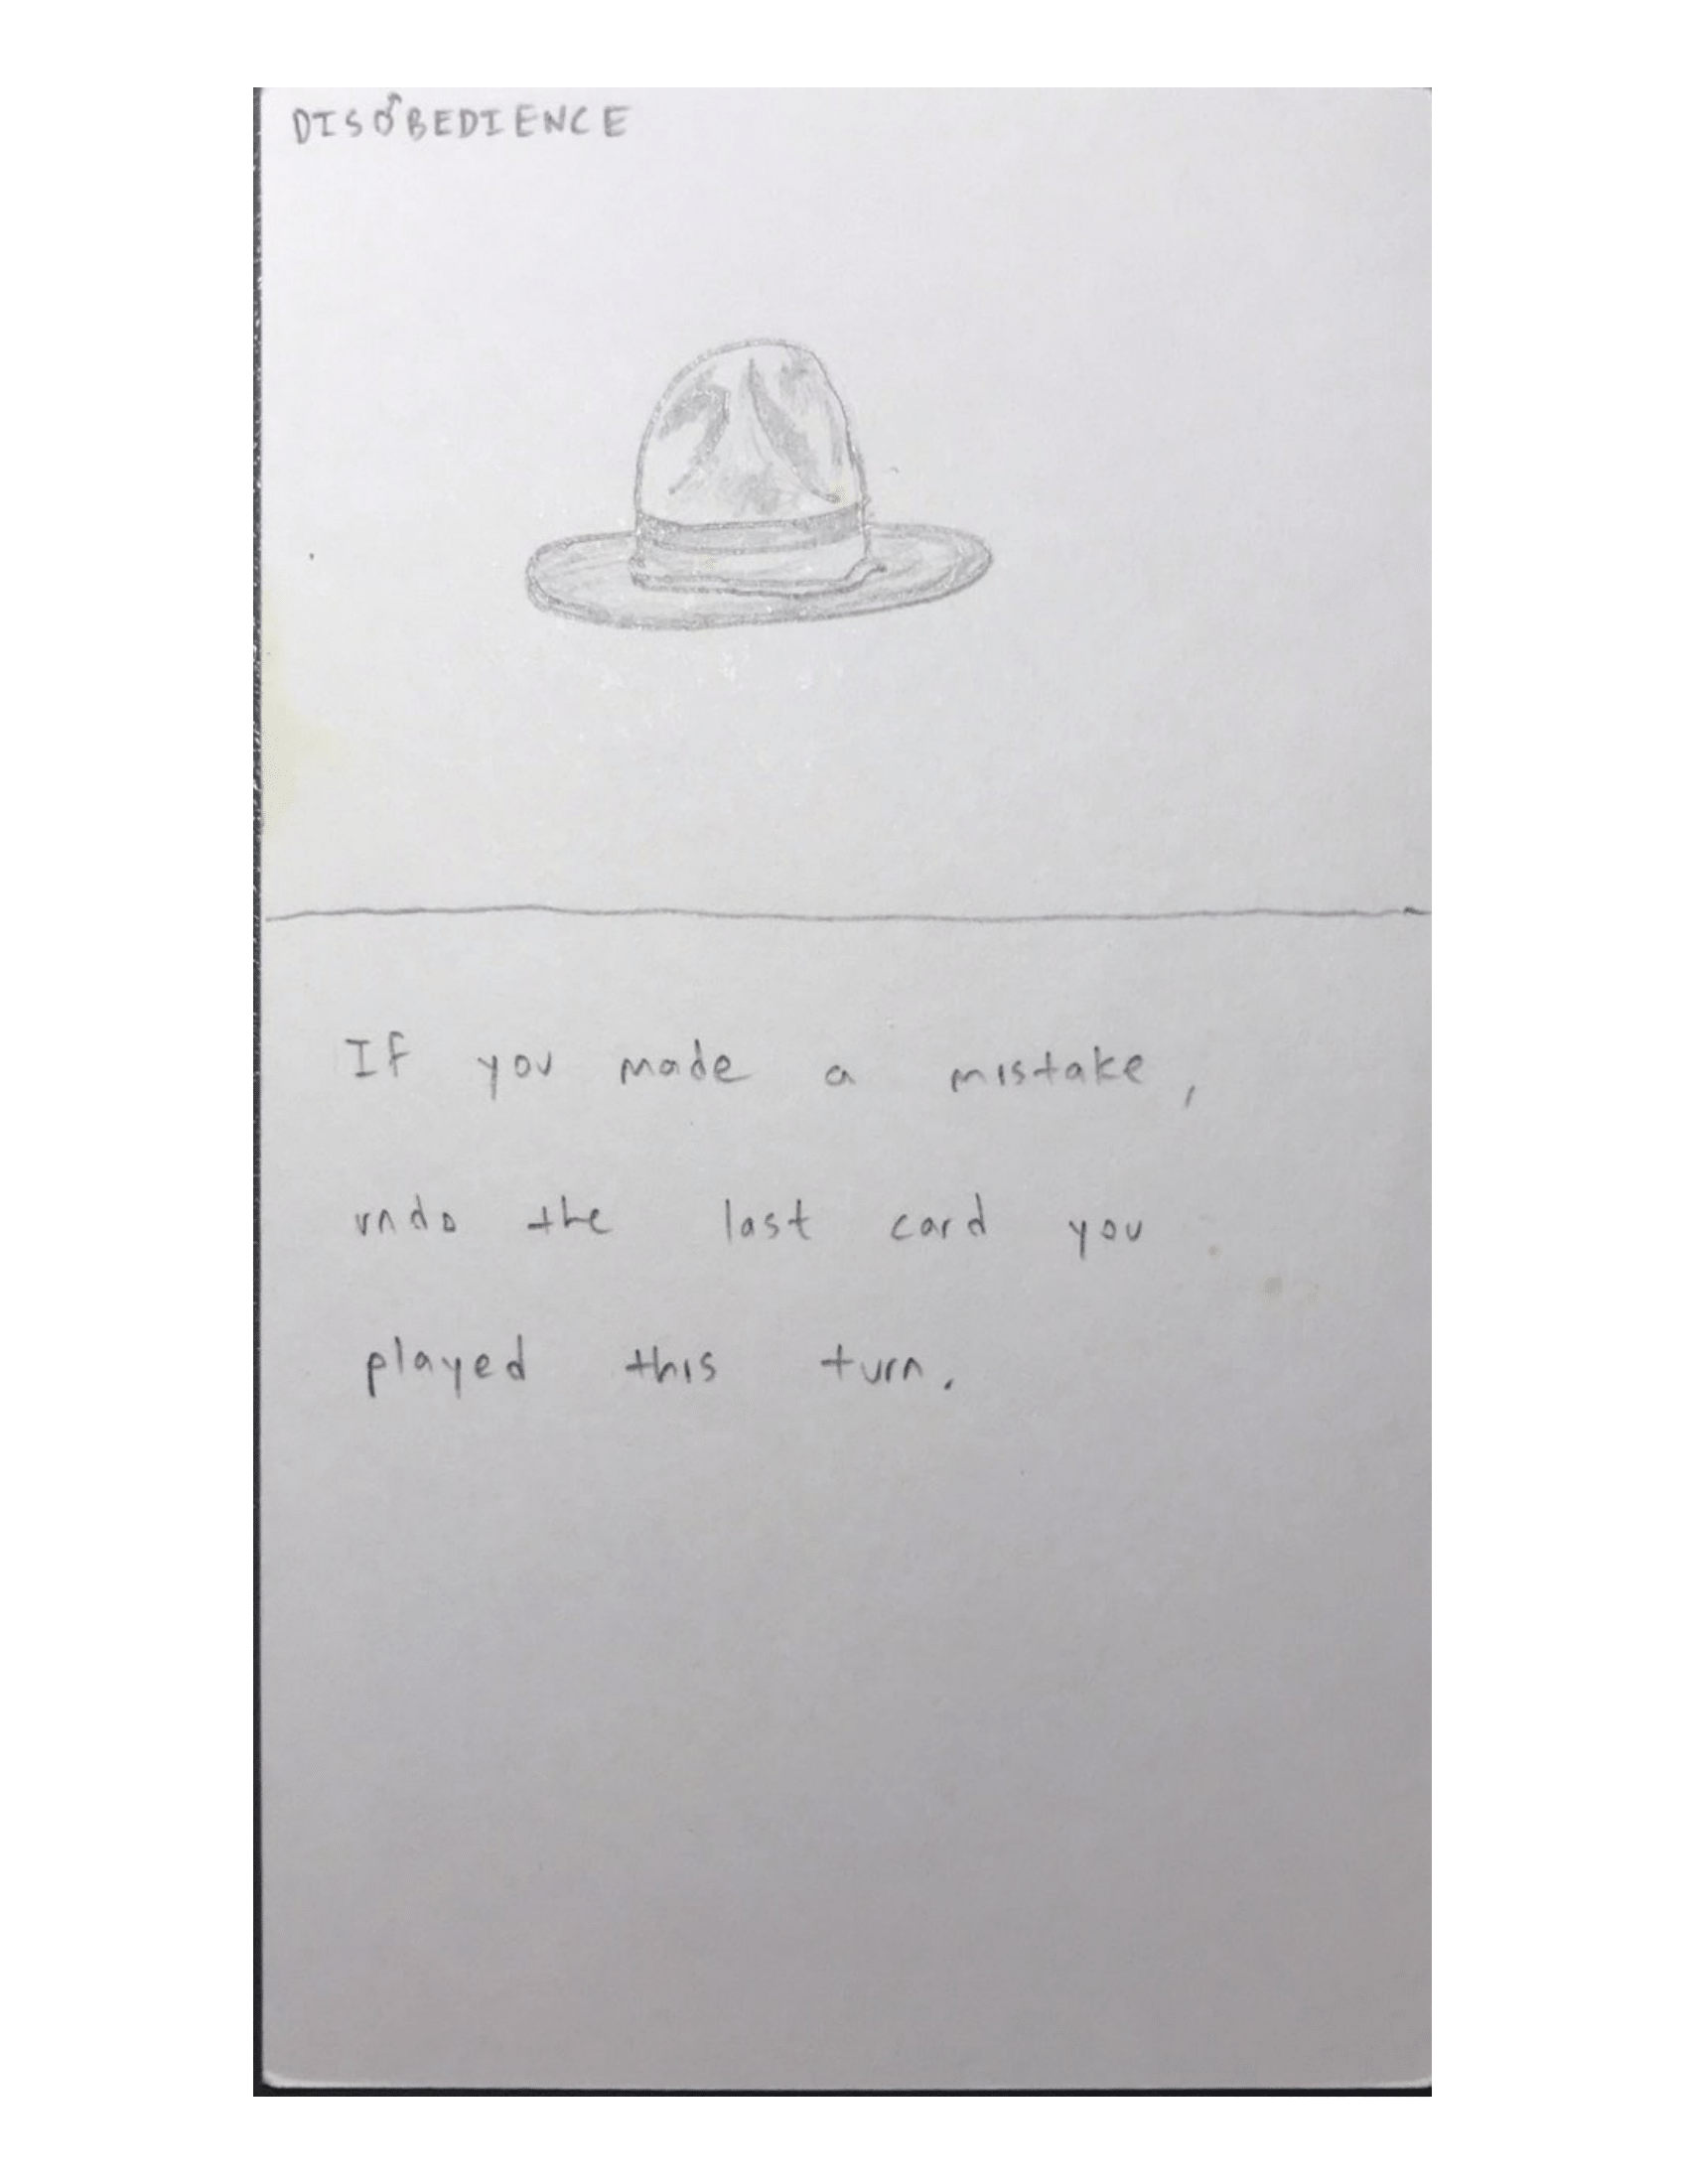 DISOBEDIENCE
If you made a mistake,
undo the last card you
played this turn.